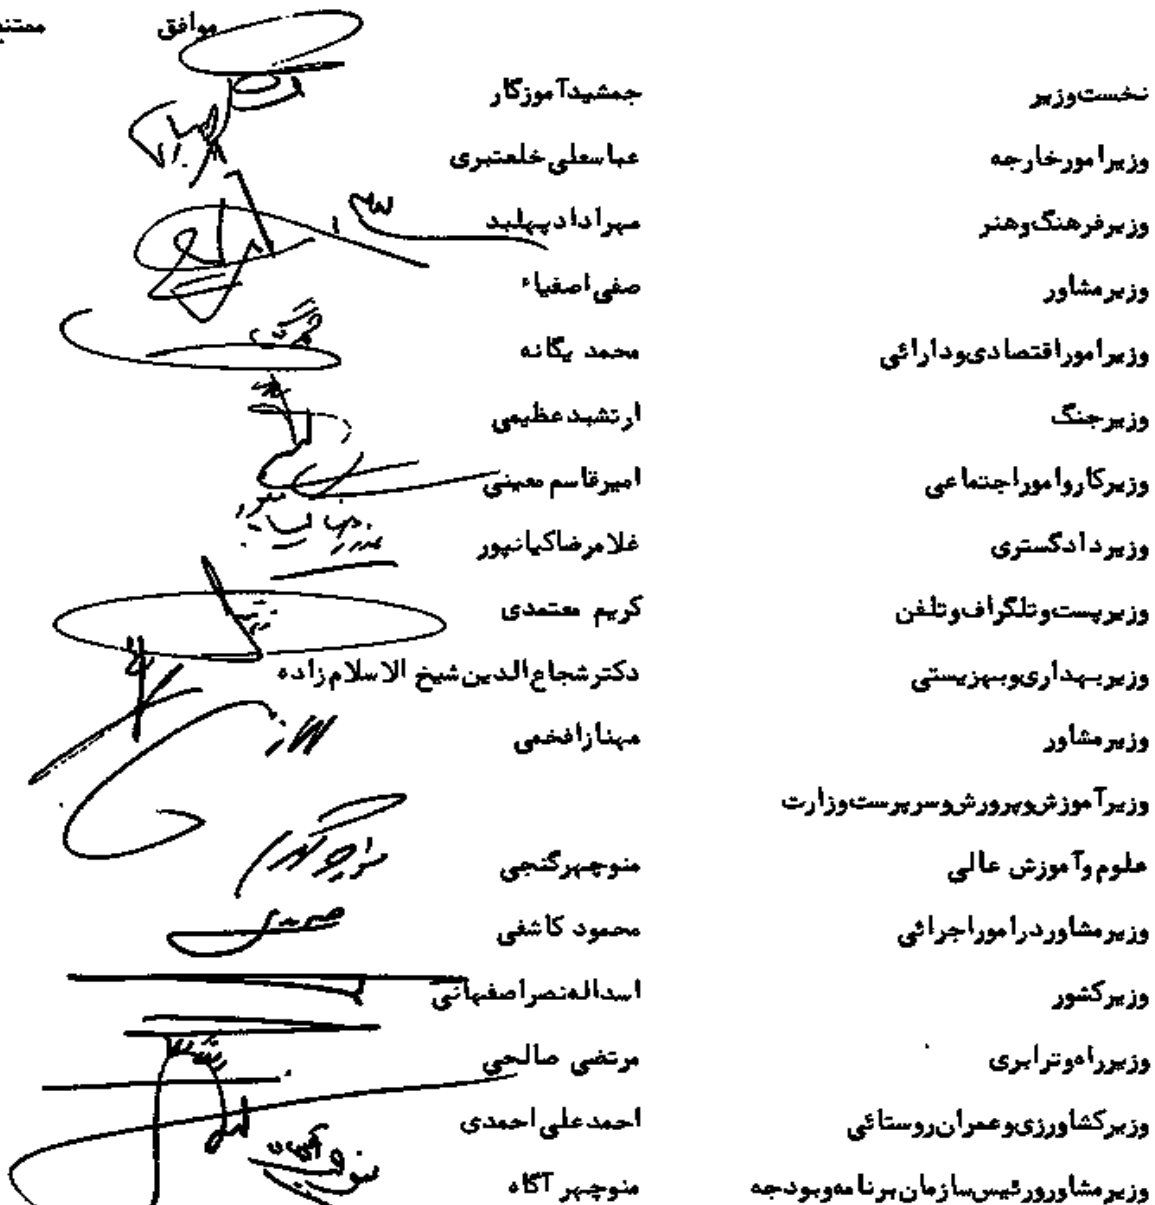 موافق ممتنع
نخست‌وزیر جمشیدآموزگار
وزیرامورخارجه عباسعلی خلعتبری
وزیرفرهنگ‌وهنر مهرداد‌پهلبد
وزیرمشاور صفی‌اصفیاء
وزیراموراقتصادی‌ودارائی محمد یگانه
وزیرجنگ ارتشبدعظیمی
وزیرکارواموراجتماعی امیرقاسم معینی
وزیردادگستری غلامرضاکیانپور
وزیرپست‌وتلگراف‌وتلفن کریم معتمدی
وزیربهداری‌وبهزیستی دکترشجاع‌الدین‌شیخ الاسلام‌زاده
وزیرمشاور مهنازافخمی
وزیرآموزش‌وپرورش‌وسرپرست‌وزارت
علوم‌وآموزش عالی منوچهرگنجی
وزیرمشاوردراموراجرائی محمود کاشفی
وزیرکشور اسداله‌نصراصفهانی
وزیرراه‌وترابری مرتضی صالحی
وزیرکشاورزی‌وعمران‌روستائی احمدعلی‌احمدی
وزیرمشاورورئیس‌سازمان‌برنامه‌وبودجه منوچهر آگاه